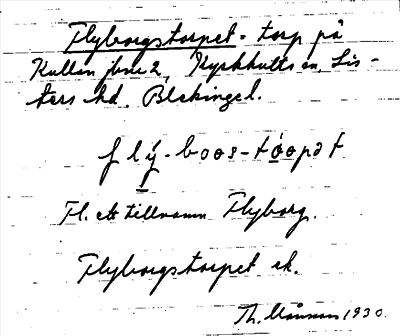 Flyborgstorpet = torp på
Kullan jbnr 2, Kyrkhults sn, Lis-
ters hd. Blekinge l.
flý-boos-tóopət
Fl. ett tillnamn Flyborg.
Flyborgstorpet ek.
Th. Månsson 1930.